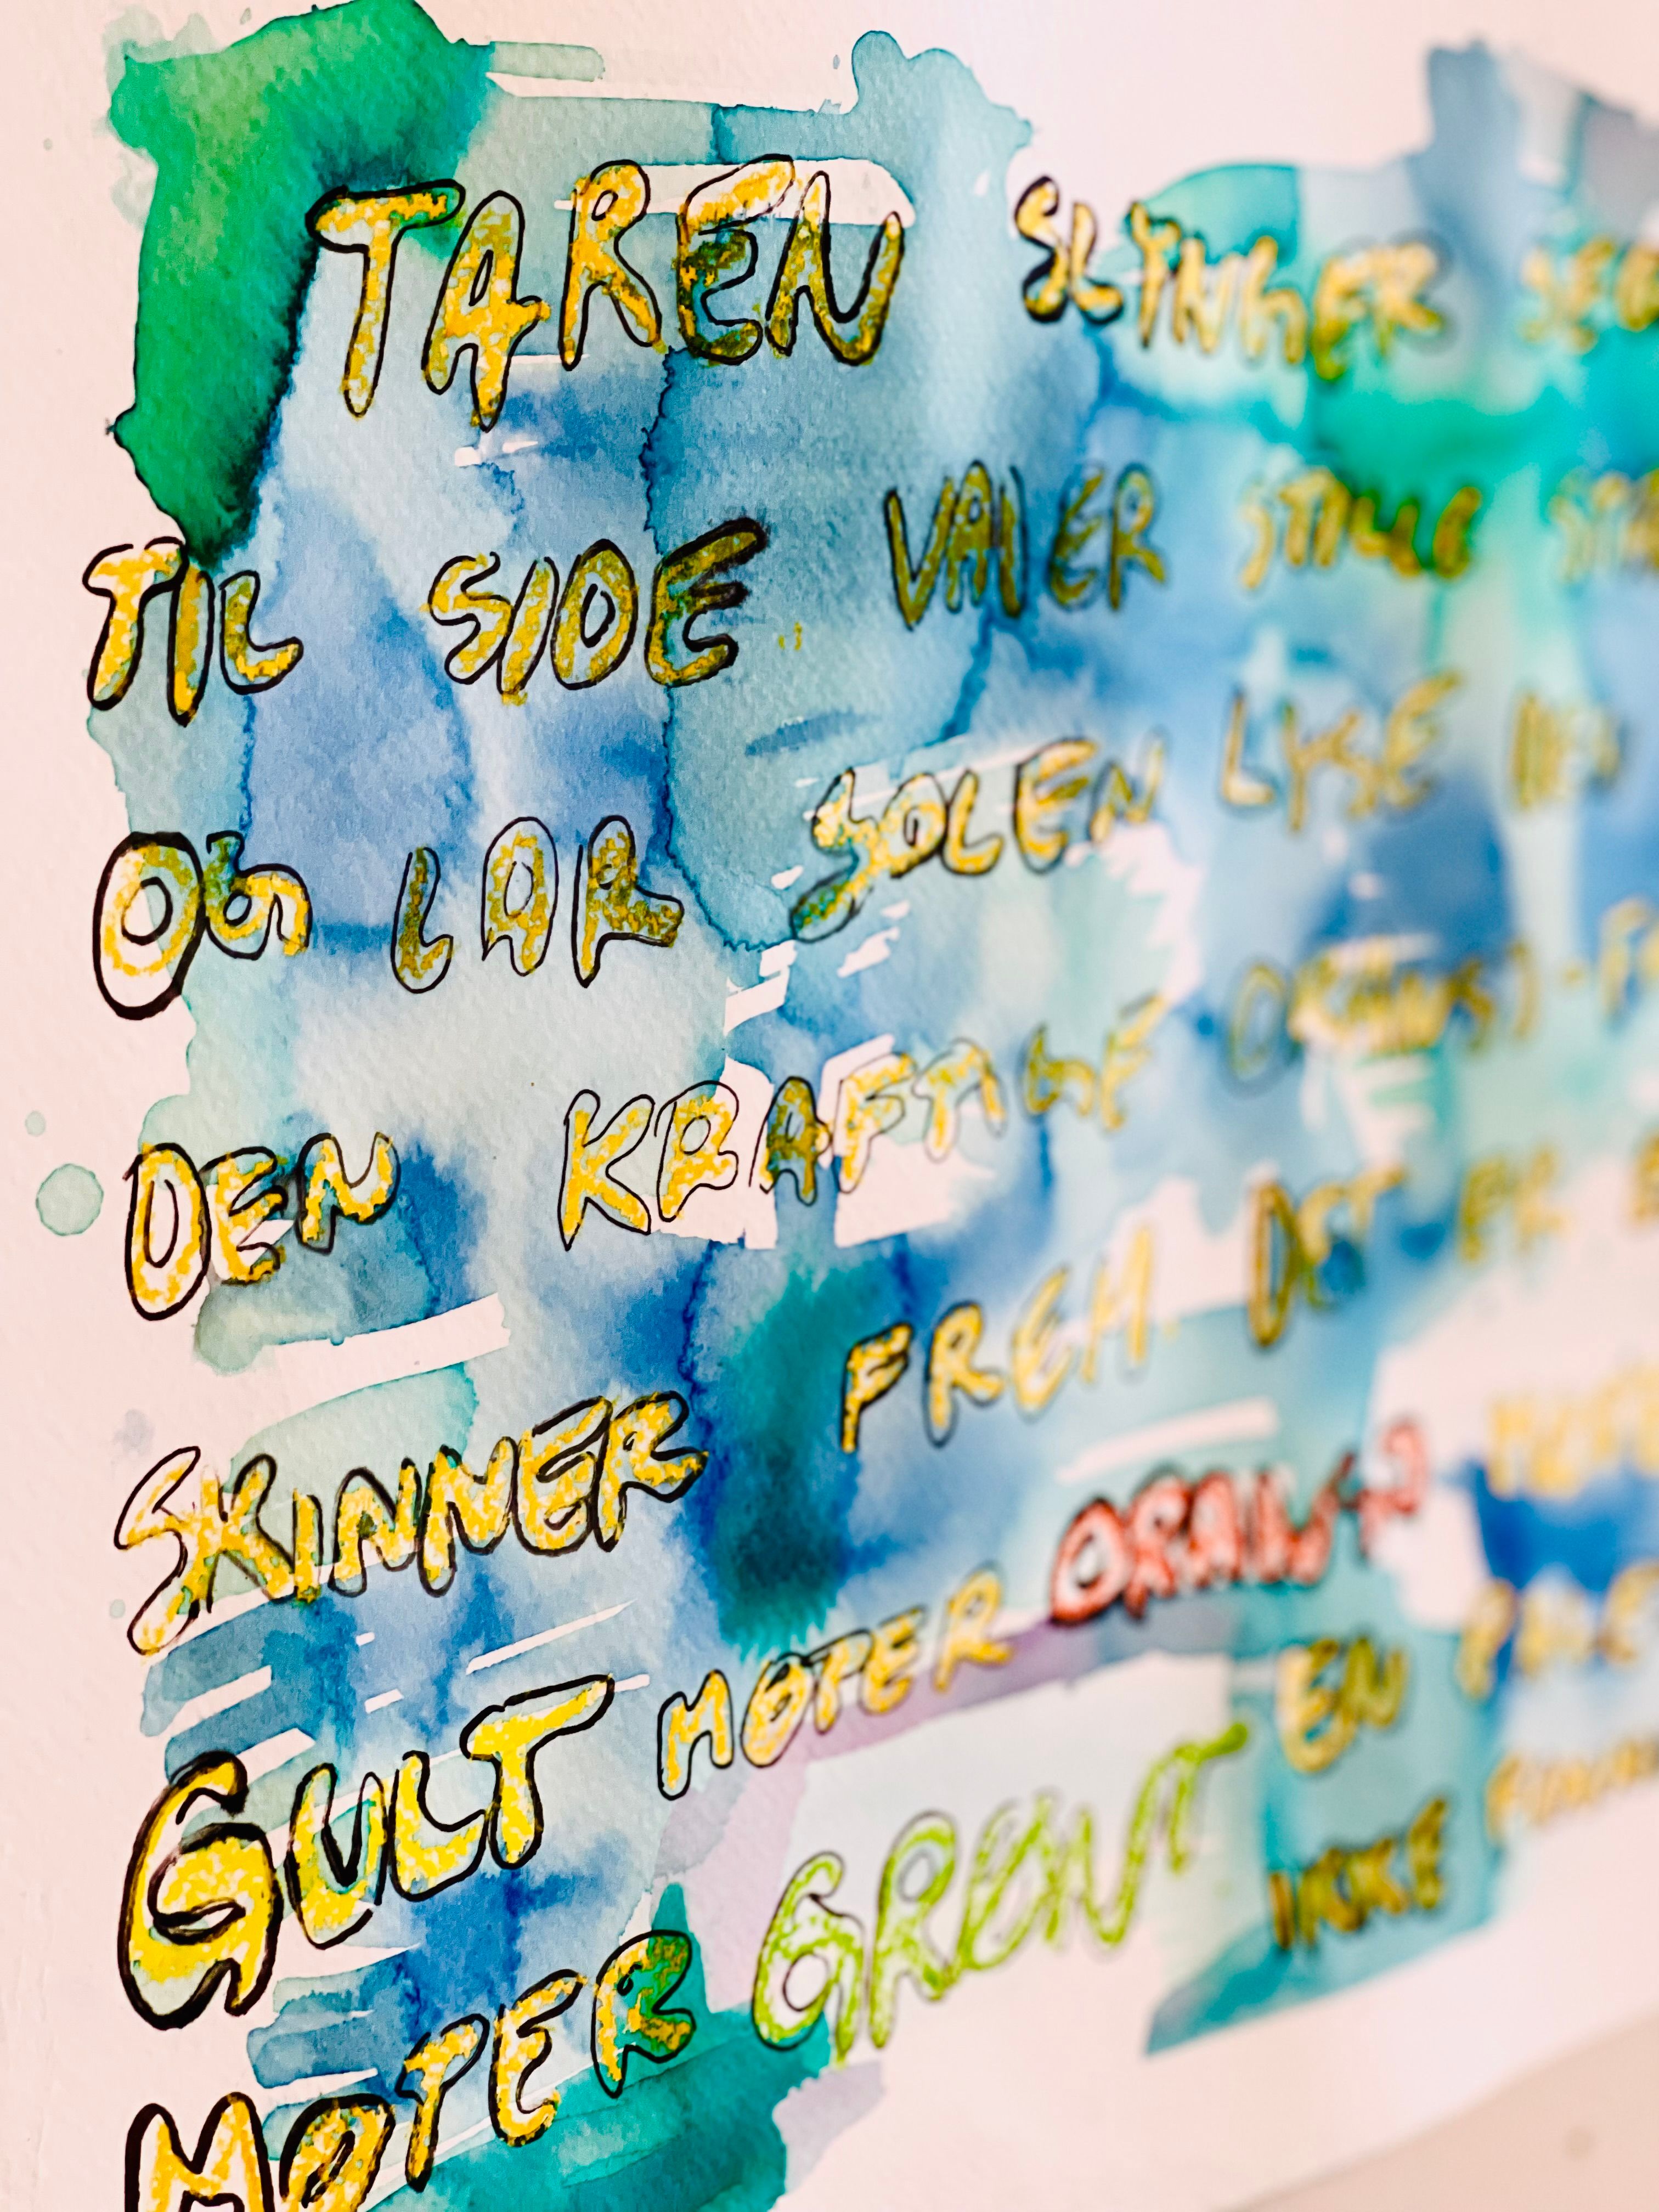 TAREN SLYNGER SEG
TIL SIDE VAIER STILLE
OG LAR SOLEN LYSE NED
DEN KRAFTIGE ORANSJ-
SKINNER FREM DET ER
GULT MØTER ORANSJ
MØTER GRØNT EN
IKKE